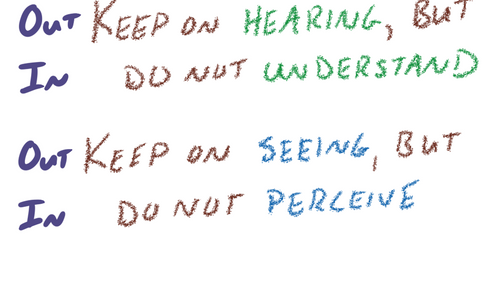 OUT KEEP ON HEARING, BUT
IN DO NOT UNDERSTAND
OUT KEEP ON SEEING, BUT
IN DO NOT PERCEIVE